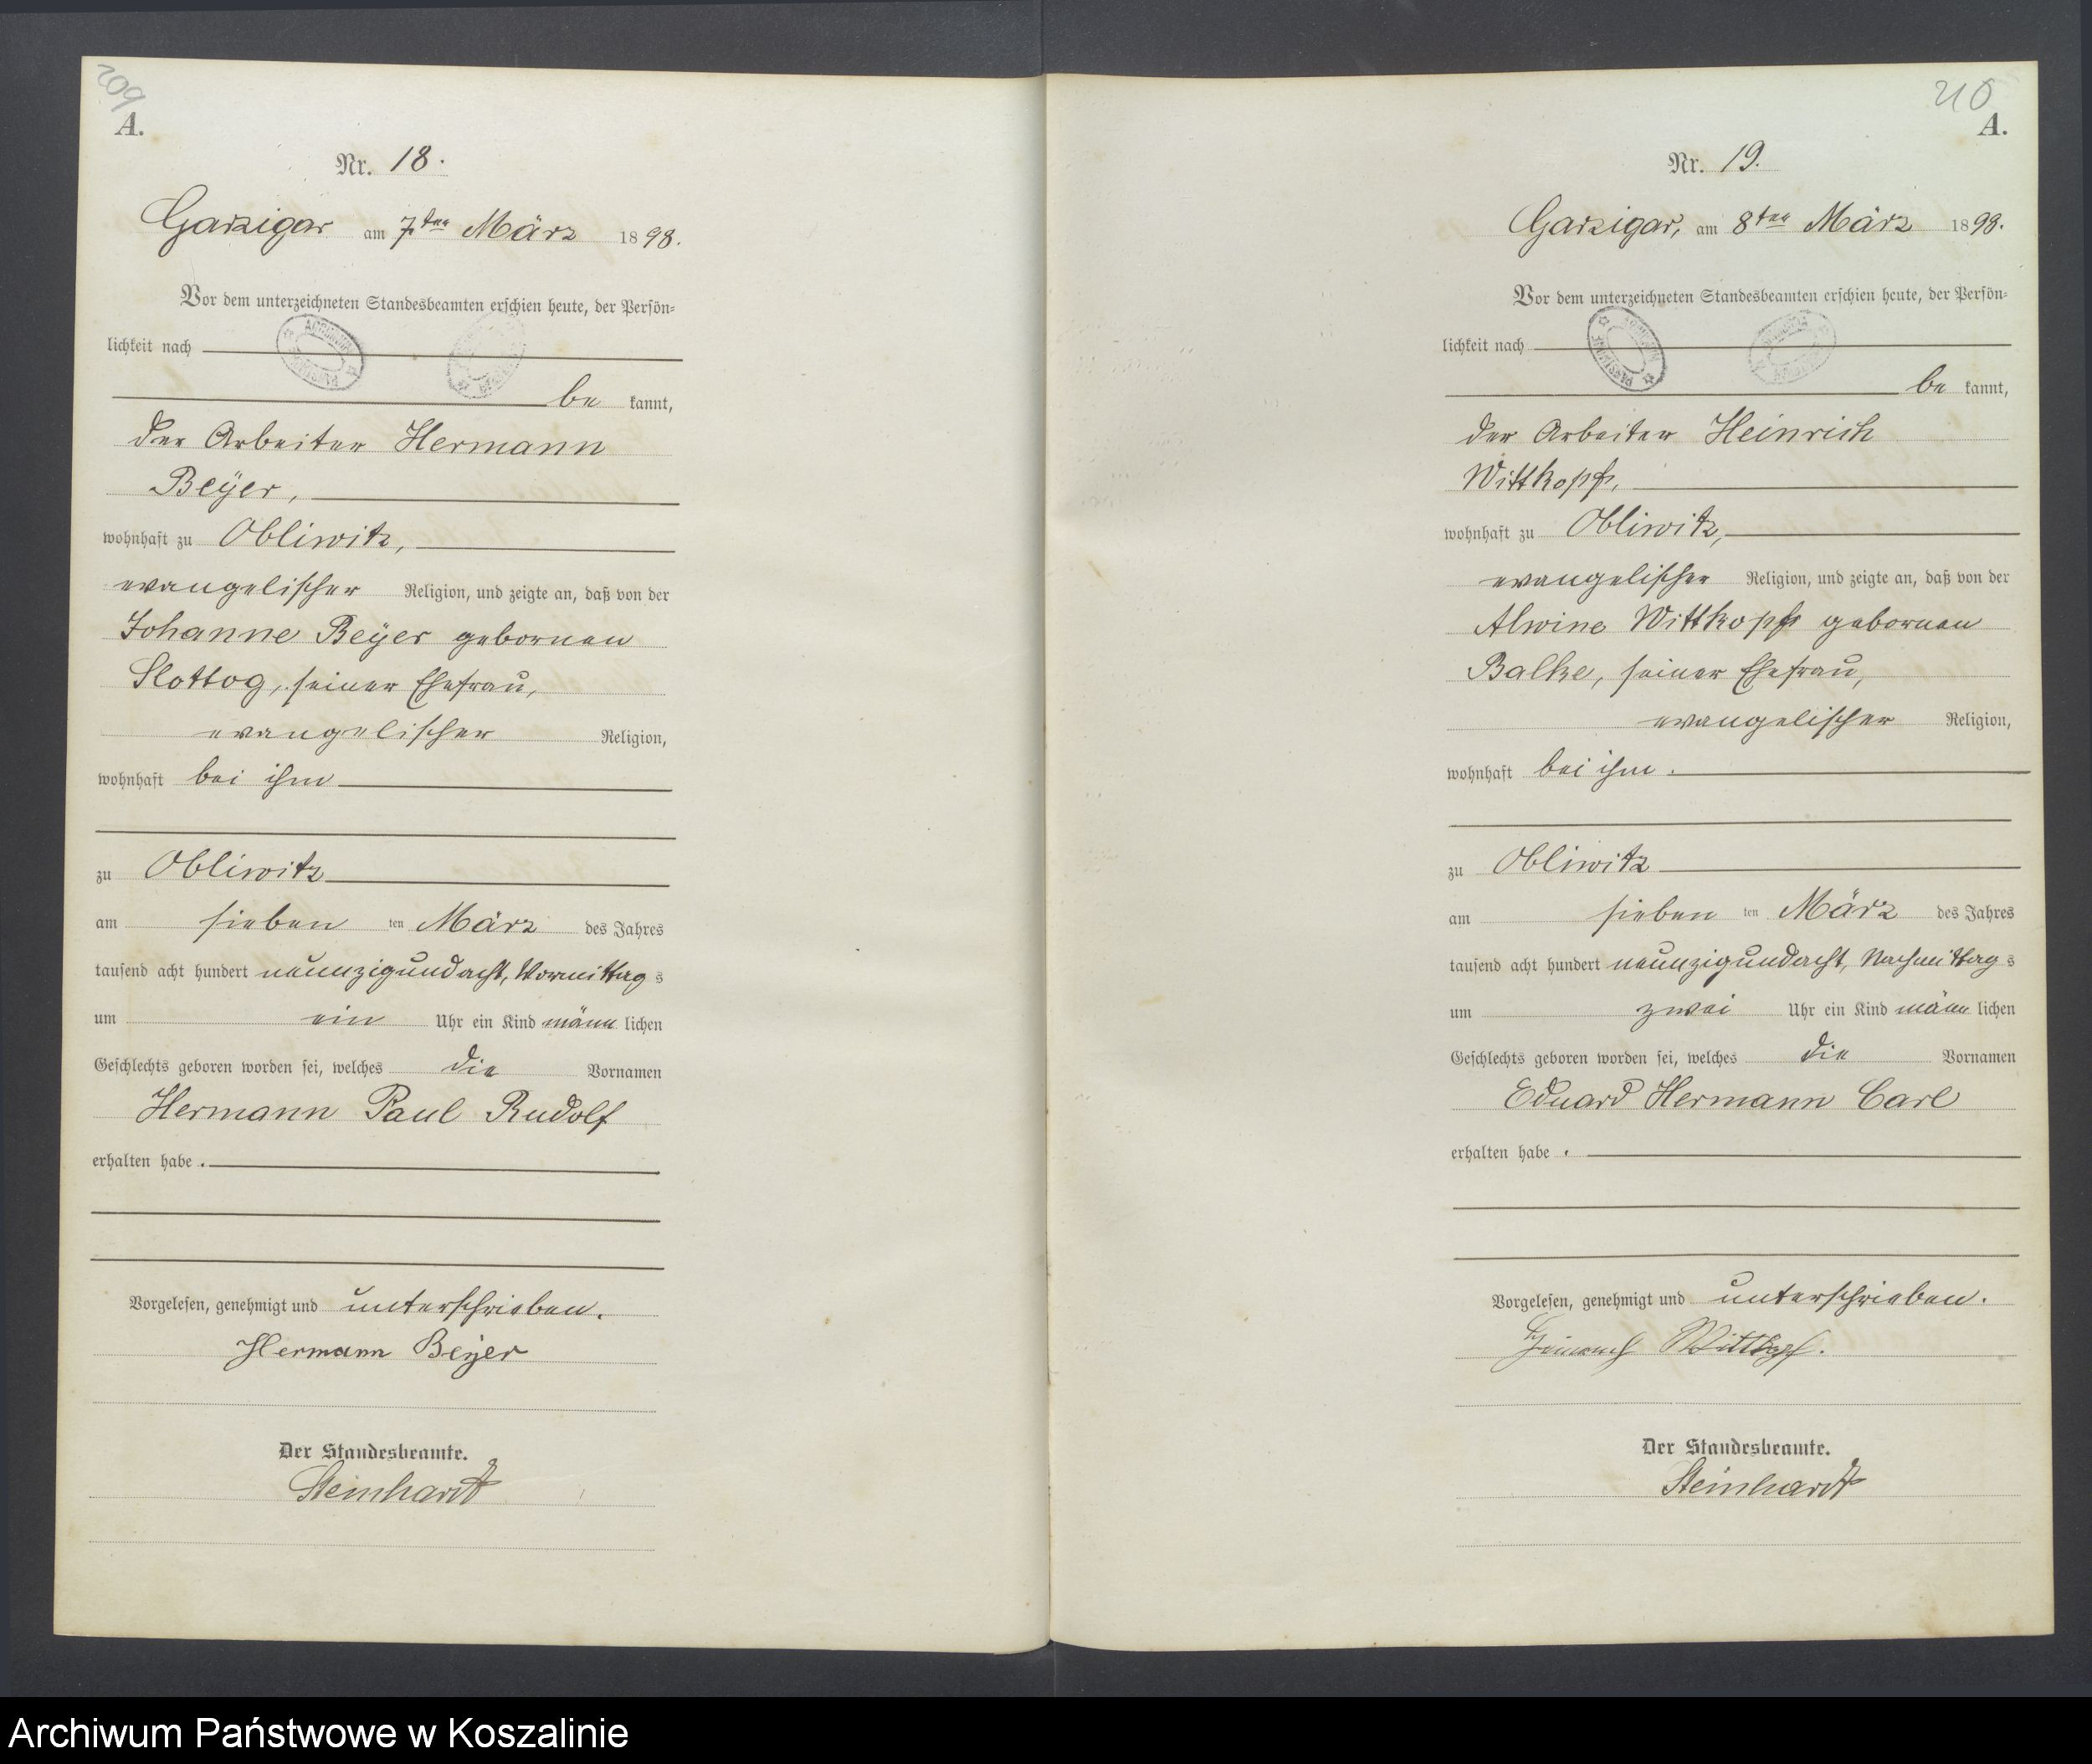 209
A.
Nr. 18.
Garzigar am 7ten März 1898.
Vor dem unterzeichneten Standesbeamten erschien heute, der Persön-
lichkeit nach
be kannt,
der Arbeiter Hermann
Beÿer,
wohnhaft zu Obliwitz,
evangelischer Religion, und zeigte an, daß von der
Johanne Beÿer gebornen
Slottog, seiner Ehefrau,
evangelischer Religion,
wohnhaft bei ihm
zu Obliwitz
am sieben ten März des Jahres
tausend acht hundert neunzigundacht, Vormittag s
um ein Uhr ein Kind männ lichen
Geschlechts geboren worden sei, welches die Vornamen
Hermann Paul Rudolf
erhalten habe.
Vorgelesen, genehmigt und unterschrieben.
Hermann Beÿer
Der Standesbeamte.
Steinhardt
210
A.
Nr. 19.
Garzigar, am 8ten März 1898.
Vor dem unterzeichneten Standesbeamten erschien heute, der Persön-
lichkeit nach
be kannt,
der Arbeiter Heinrich
Wittkopf,
wohnhaft zu Obliwitz,
evangelischer Religion, und zeigte an, daß von der
Alwine Wittkopf gebornen
Balke, seiner Ehefrau,
evangelischer Religion,
wohnhaft bei ihm.
zu Obliwitz
am sieben ten März des Jahres
tausend acht hundert neunzigundacht, Nachmittag s
um zwei Uhr ein Kind männ lichen
Geschlechts geboren worden sei, welches die Vornamen
Eduard Hermann Carl
erhalten habe.
Vorgelesen, genehmigt und unterschrieben.
Heinrich Wittkopf.
Der Standesbeamte.
Steinhardt
Archiwum Państwowe w Koszalinie